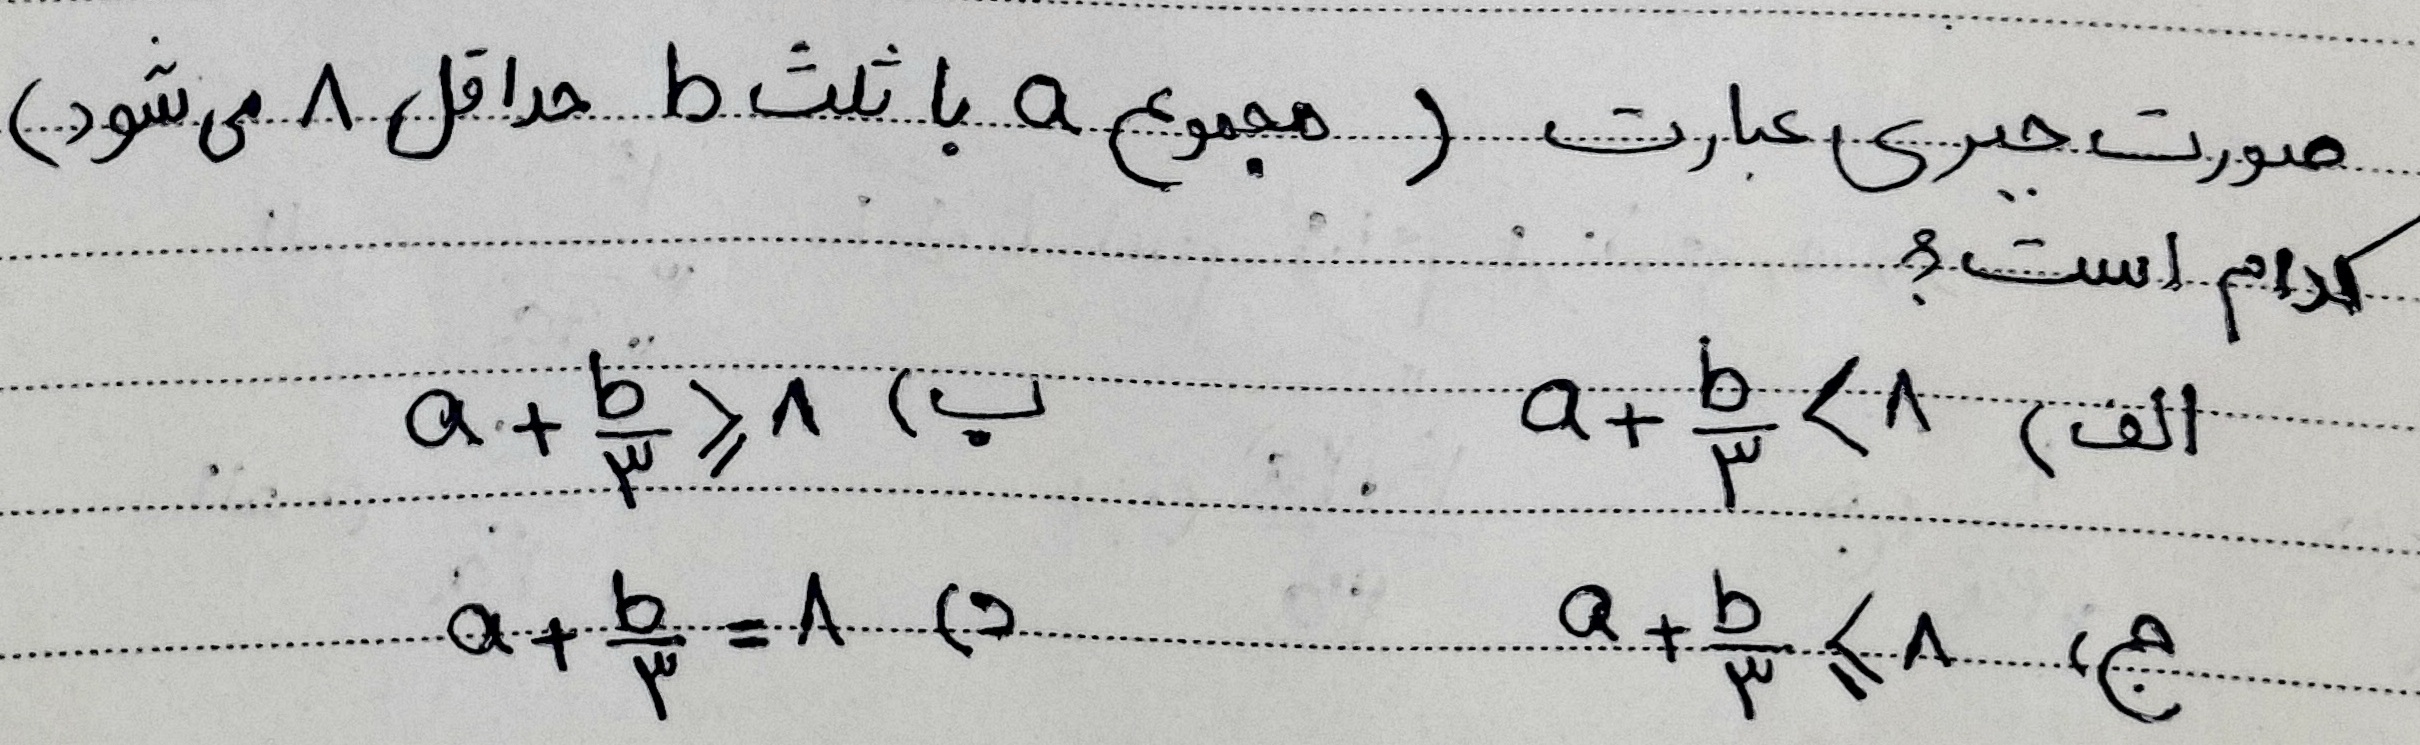 صورت جبری عبارت (مجموع a با ثلث b حداقل ۸ می‌شود)
کدام است؟
الف) a + b/۳ < ۸ ب) a + b/۳ ⩾ ۸
ج) a + b/۳ ⩽ ۸ د) a + b/۳ = ۸